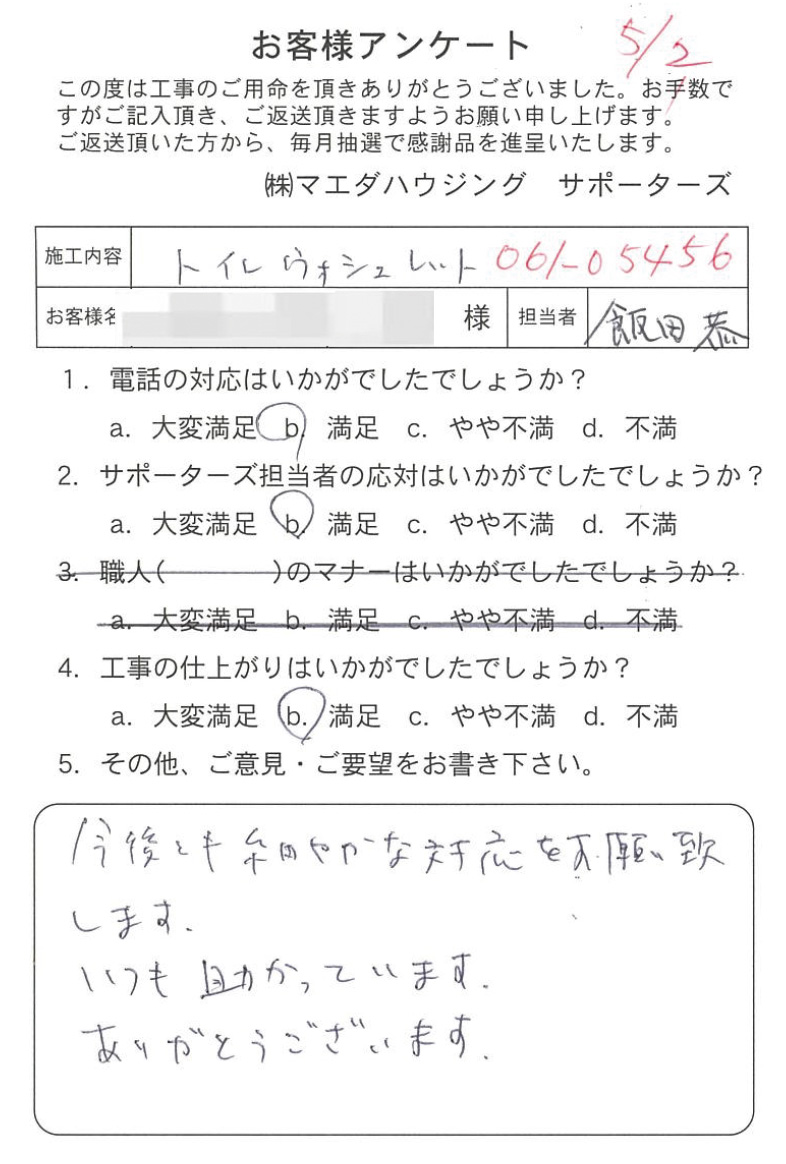 お客様アンケート 5/2
この度は工事のご用命を頂きありがとうございました。お手数で
すがご記入頂き、ご返送頂きますようお願い申し上げます。
ご返送頂いた方から、毎月抽選で感謝品を進呈いたします。
㈱マエダハウジング サポーターズ
施工内容 トイレウォシュレット 061-05456
お客様名 様 担当者 飯田 恭
1. 電話の対応はいかがでしたでしょうか?
a. 大変満足 b. 満足 c. やや不満 d. 不満
2. サポーターズ担当者の応対はいかがでしたでしょうか?
a. 大変満足 b. 満足 c. やや不満 d. 不満
3. 職人( )のマナーはいかがでしたでしょうか?
a. 大変満足 b. 満足 c. やや不満 d. 不満
4. 工事の仕上がりはいかがでしたでしょうか?
a. 大変満足 b. 満足 c. やや不満 d. 不満
5. その他、ご意見・ご要望をお書き下さい。
今後とも細やかな対応をお願い致
します.
いつも助かっています.
ありがとうございます.